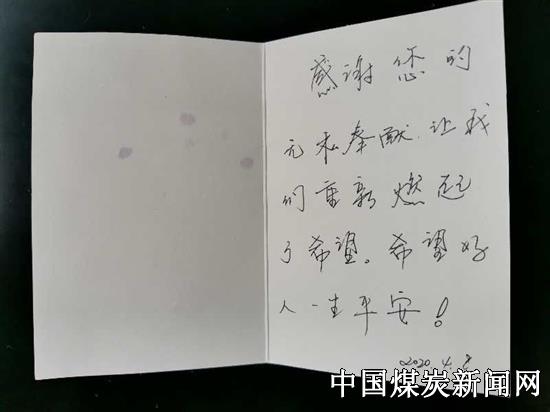 感谢您的
无私奉献,让我
们重新燃起
了希望。希望好
人一生平安!
2020.4.
中国煤炭新闻网